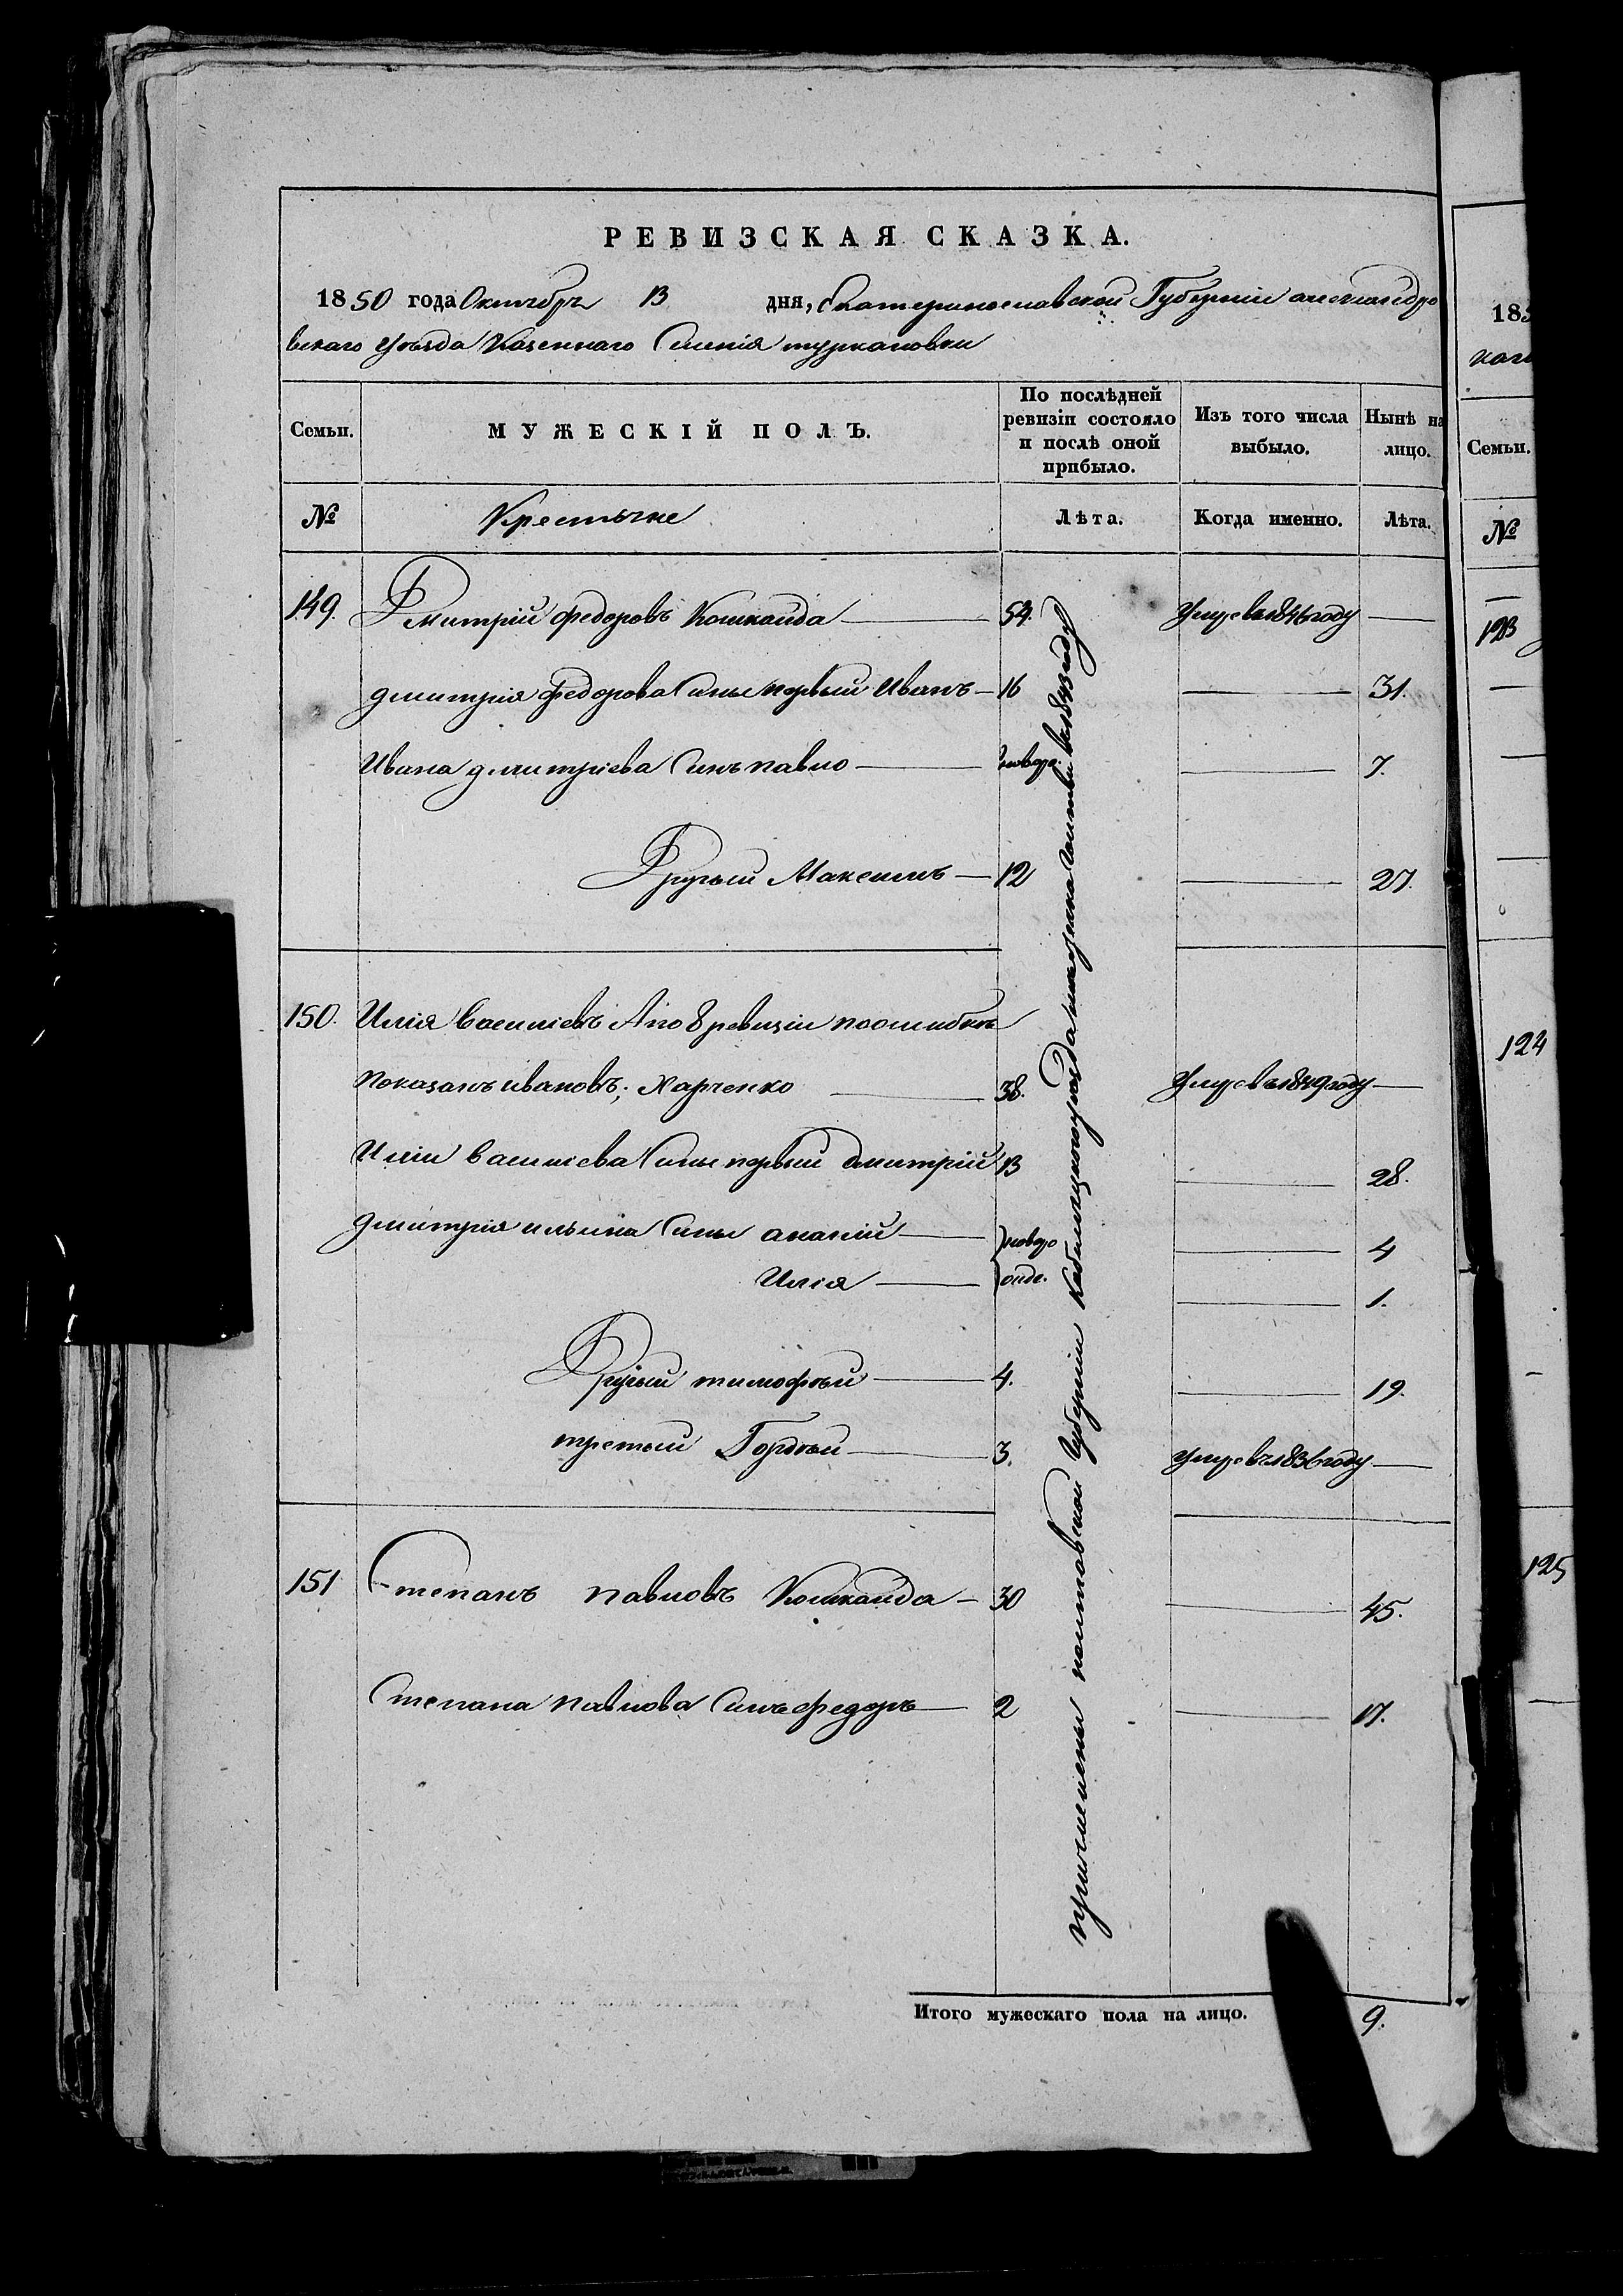 РЕВИЗСКАЯ СКАЗКА.
1850 года Октябръ 13 дня, Екатеринославской Губерніи александро
вскаго уѣзда Казеннаго Селенія туркановки
Семьи. МУЖЕСКІЙ ПОЛЪ. По послѣдней ревизіи состояло и послѣ оной прибыло. Изъ того числа выбыло. Нынѣ на лицо.
№ Крестьяне Лѣта. Когда именно. Лѣта.
149. Дмитрій федоровъ Кошканда 54. Умре въ 1846 году
дмитрія федорова Сины первый Иванъ 16 31.
Ивана дмитріева Синъ павло новоро. 7.
Другый Максимъ 12 27.
150. Илія василіевъ А по 8 ревизіи по ошибкѣ
показанъ ивановъ; Харченко 38. Умре въ 1849 году
Иліи василіева Сины первый дмитрій 13 28.
дмитрія ильина Сины ананій новоро 4
Илія онде. 1.
Другый тимофѣй 4. 19.
третый Гордѣй 3. умре въ 1836 году
151 Степанъ павловъ Кошканда 30 45.
Степана павлова Синъ федоръ 2 17.
причислены полтавской Губерніи Кобыляцкого уѣзда въ 1843 году
Итого мужескаго пола на лицо. 9.
185
каз
Семьи.
№
123
124
125